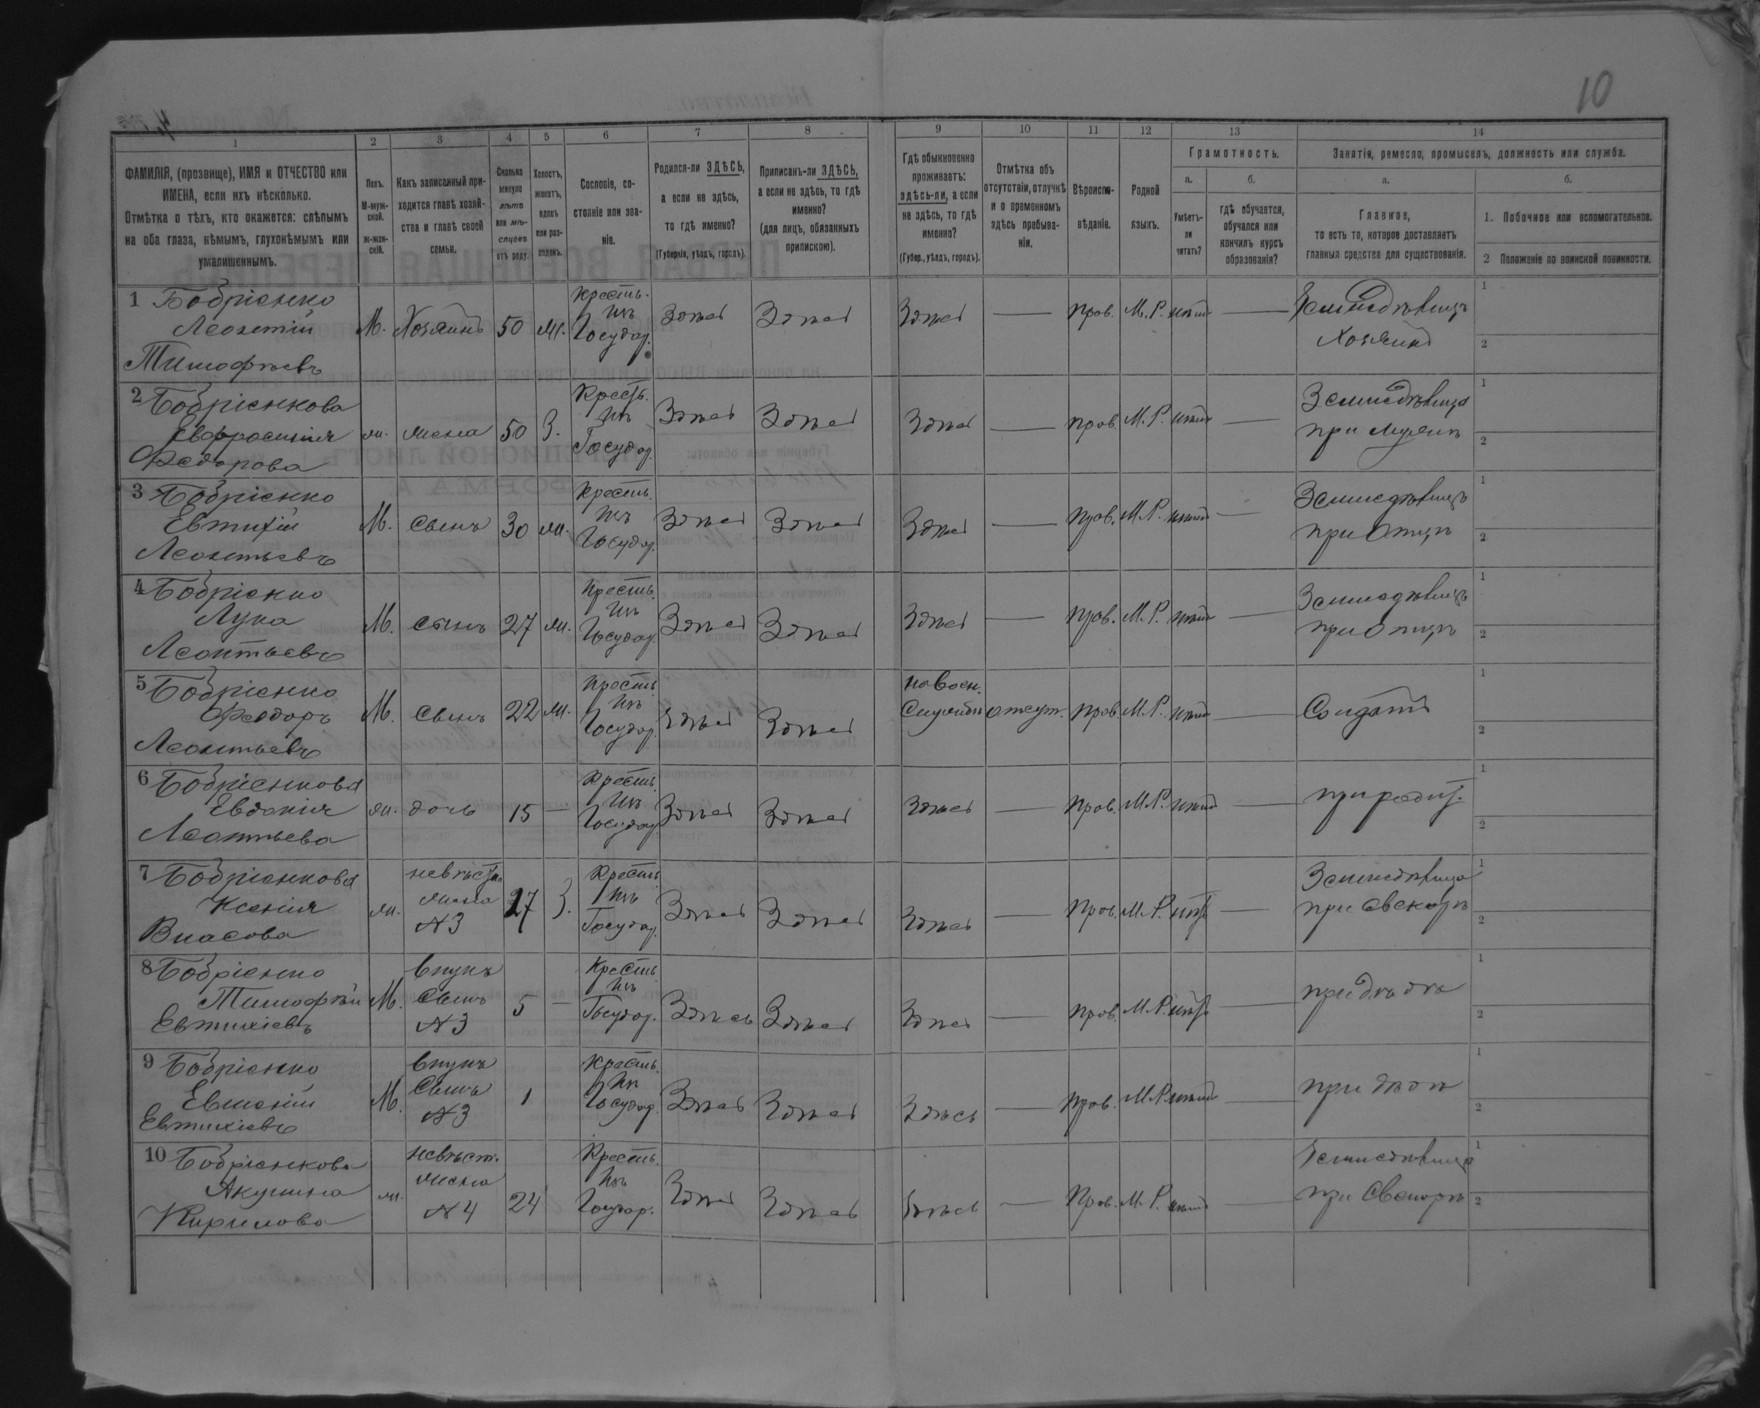 10
1 2 3 4 5 6 7 8 9 10 11 12 13 14
ФАМИЛІЯ, (прозвище), ИМЯ и ОТЧЕСТВО или ИМЕНА, если ихъ нѣсколько.
Отмѣтка о тѣхъ, кто окажется: слѣпымъ на оба глаза, нѣмымъ, глухонѣмымъ или умалишеннымъ.
Полъ. М-мужской. ж-женскій.
Какъ записанный приходится главѣ хозяйства и главѣ своей семьи.
Сколько минуло лѣтъ или мѣсяцевъ отъ роду.
Холостъ, женатъ, вдовъ или разведенъ.
Сословіе, состояніе или званіе.
Родился-ли ЗДѢСЬ, а если не здѣсь, то гдѣ именно?
(Губернія, уѣздъ, городъ).
Приписанъ-ли ЗДѢСЬ, а если не здѣсь, то гдѣ именно?
(для лицъ, обязанныхъ припискою).
Гдѣ обыкновенно проживаетъ: здѣсь-ли, а если не здѣсь, то гдѣ именно?
(Губер., уѣздъ, городъ).
Отмѣтка объ отсутствіи, отлучкѣ и о временномъ здѣсь пребываніи.
Вѣроисповѣданіе.
Родной языкъ.
Грамотность.
а. Умѣетъ-ли читать?
б. гдѣ обучается, обучался или кончилъ курсъ образованія?
Занятія, ремесло, промыселъ, должность или служба.
а. Главное, то есть то, которое доставляетъ главныя средства для существованія.
б.
1. Побочное или вспомогательное.
2 Положеніе по воинской повинности.
1 Бобріенко Леонтій Тимофѣевъ М. Хозяинъ 50 ж. Кресть. изъ Государ. Здѣсь Здѣсь Здѣсь — Прав. М.Р. нѣтъ — Земледѣлецъ Хозяинъ 1 2
2 Бобріенкова Евфросинія Федорова ж. жена 50 З. Кресть. изъ Государ. Здѣсь Здѣсь Здѣсь — прав. М.Р. нѣтъ — Земледѣлица при мужѣ 1 2
3 Бобріенко Евтихій Леонтьевъ М. Сынъ 30 ж. Кресть. изъ Государ. Здѣсь Здѣсь Здѣсь — Прав. М.Р. нѣтъ — Земледѣлецъ при Отцѣ 1 2
4 Бобріенко Лука Леонтьевъ М. сынъ 27 ж. Кресть. изъ Государ. Здѣсь Здѣсь Здѣсь — Прав. М.Р. нѣтъ — Земледѣлецъ при Отцѣ 1 2
5 Бобріенко Феодоръ Леонтьевъ М. Сынъ 22 ж. Кресть. изъ Государ. Здѣсь Здѣсь на воен. Службѣ отсут. Прав. М.Р. нѣтъ — Солдатъ 1 2
6 Бобріенкова Евдокія Леонтьева ж. дочь 15 — Кресть. изъ Государ. Здѣсь Здѣсь Здѣсь — Прав. М.Р. нѣтъ — при родит. 1 2
7 Бобріенкова Ксенія Власова ж. невѣстка жена №3 27 З. Кресть. изъ Государ. Здѣсь Здѣсь Здѣсь — Прав. М.Р. нѣтъ — Земледѣлица при Свекорѣ 1 2
8 Бобріенко Тимофѣй Евтихіевъ М. Внукъ Сынъ №3 5 — Кресть. изъ Государ. Здѣсь Здѣсь Здѣсь — прав. М.Р. нѣтъ — при дѣдѣ 1 2
9 Бобріенко Евтихіевъ М. Внукъ Сынъ №3 1 Кресть. изъ Государ. Здѣсь Здѣсь Здѣсь — Прав. М.Р. нѣтъ — при дѣдѣ 1 2
10 Бобріенкова Акулина Кирилова ж. невѣст. жена №4 24 Кресть. изъ Государ. Здѣсь Здѣсь Здѣсь — Прав. М.Р. нѣтъ — Земледѣлица при Свекорѣ 1 2